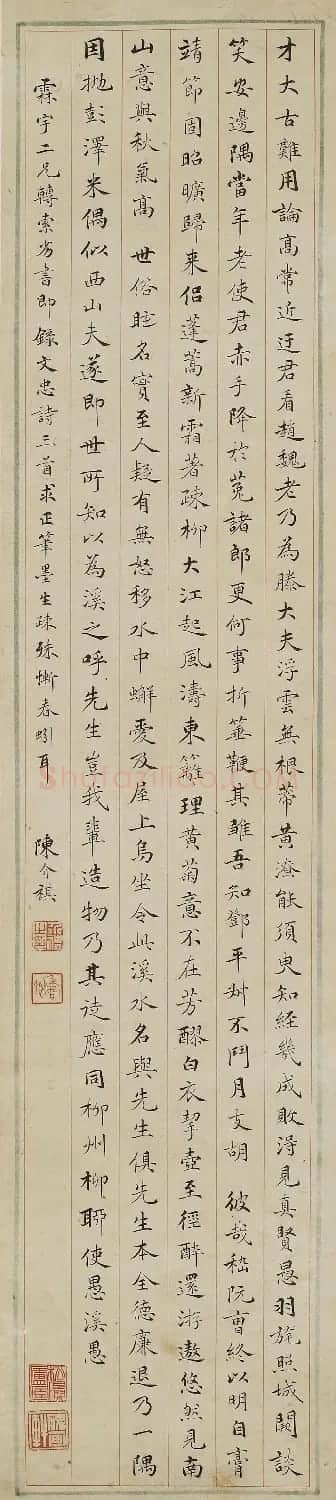 才大古難用論高常近迂君看趙魏老乃為滕大夫浮雲無根蒂黃潦能須臾知經幾成敗得見真賢愚羽旄照城闕談
笑安邊隅當年老使君赤手降於菟諸郎更何事折箠鞭其雛吾知鄧平叔不鬥月支胡 彼哉嵇阮曹終以明自膏
靖節固昭曠歸来侣蓬蒿新霜著疎柳大江起風濤東籬理黃菊意不在芳醪白衣挈壺至徑醉還游遨悠然見南
山意與秋氣高 世俗眩名實至人疑有無怒移水中蠏愛及屋上烏坐令此溪水名與先生俱先生本全德廉退乃一隅
因拋彭澤米偶似西山夫遂即世所知以為溪之呼先生豈我輩造物乃其徒應同柳州柳聊使愚溪愚
霖宇二兄轉索劣書即錄文忠詩三首求正筆墨生疎殊慚春蚓耳 陳介祺